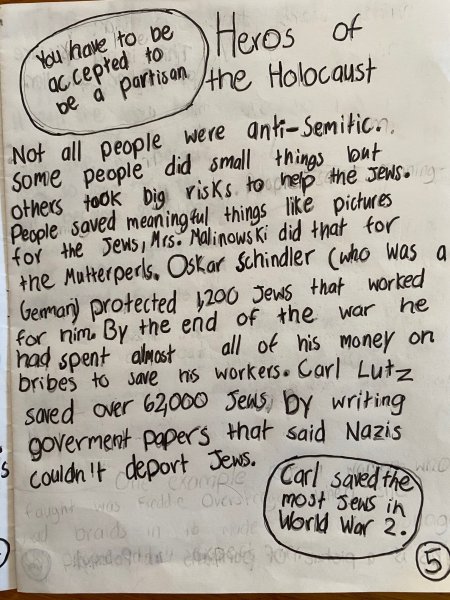 You have to be
accepted to
be a partisan
Heros of
the Holocaust
Not all people were anti-Semitic.
Some people did small things but
others took big risks to help the Jews.
People saved meaningful things like pictures
for the Jews, Mrs. Malinowski did that for
the Mutterperls. Oskar Schindler (who was a
German) protected 1,200 Jews that worked
for him. By the end of the war he
had spent almost all of his money on
bribes to save his workers. Carl Lutz
saved over 62,000 Jews by writing
goverment papers that said Nazis
couldn't deport Jews.
Carl saved the
most Jews in
World War 2.
5